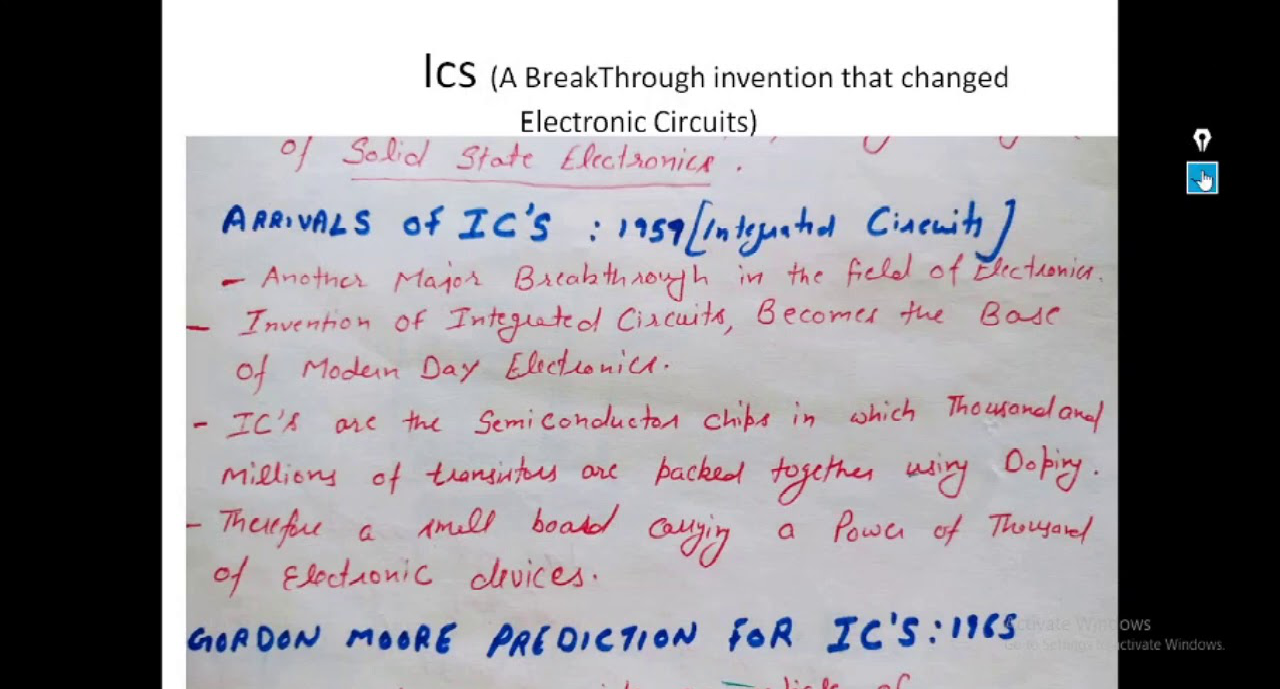 Ics (A BreakThrough invention that changed
Electronic Circuits)
of Solid State Electronics.
ARRIVALS of IC'S : 1959 [Integrated Circuits]
- Another Major Breakthrough in the field of Electronics.
- Invention of Integrated Circuits, Becomes the Base
of Modern Day Electronics.
- IC's are the Semiconductor chips in which Thousand and
Millions of transistors are packed together using Doping.
- Therefore a small board carrying a Power of Thousand
of Electronic devices.
GORDON MOORE PREDICTION FOR IC'S : 1965
Activate Windows
Go to Settings to activate Windows.